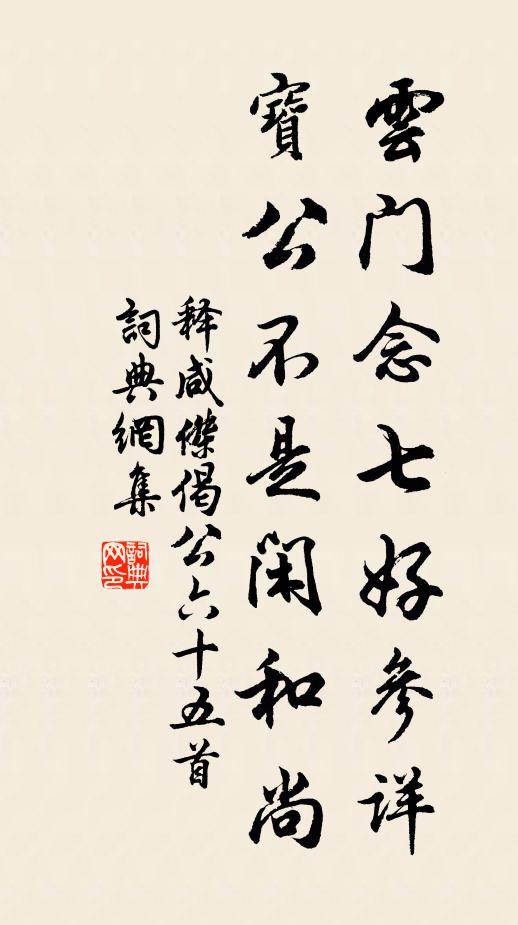 雲門念七好參詳
寶公不是閑和尚
释咸傑偈公六十五首
詞典網集
詞典网印